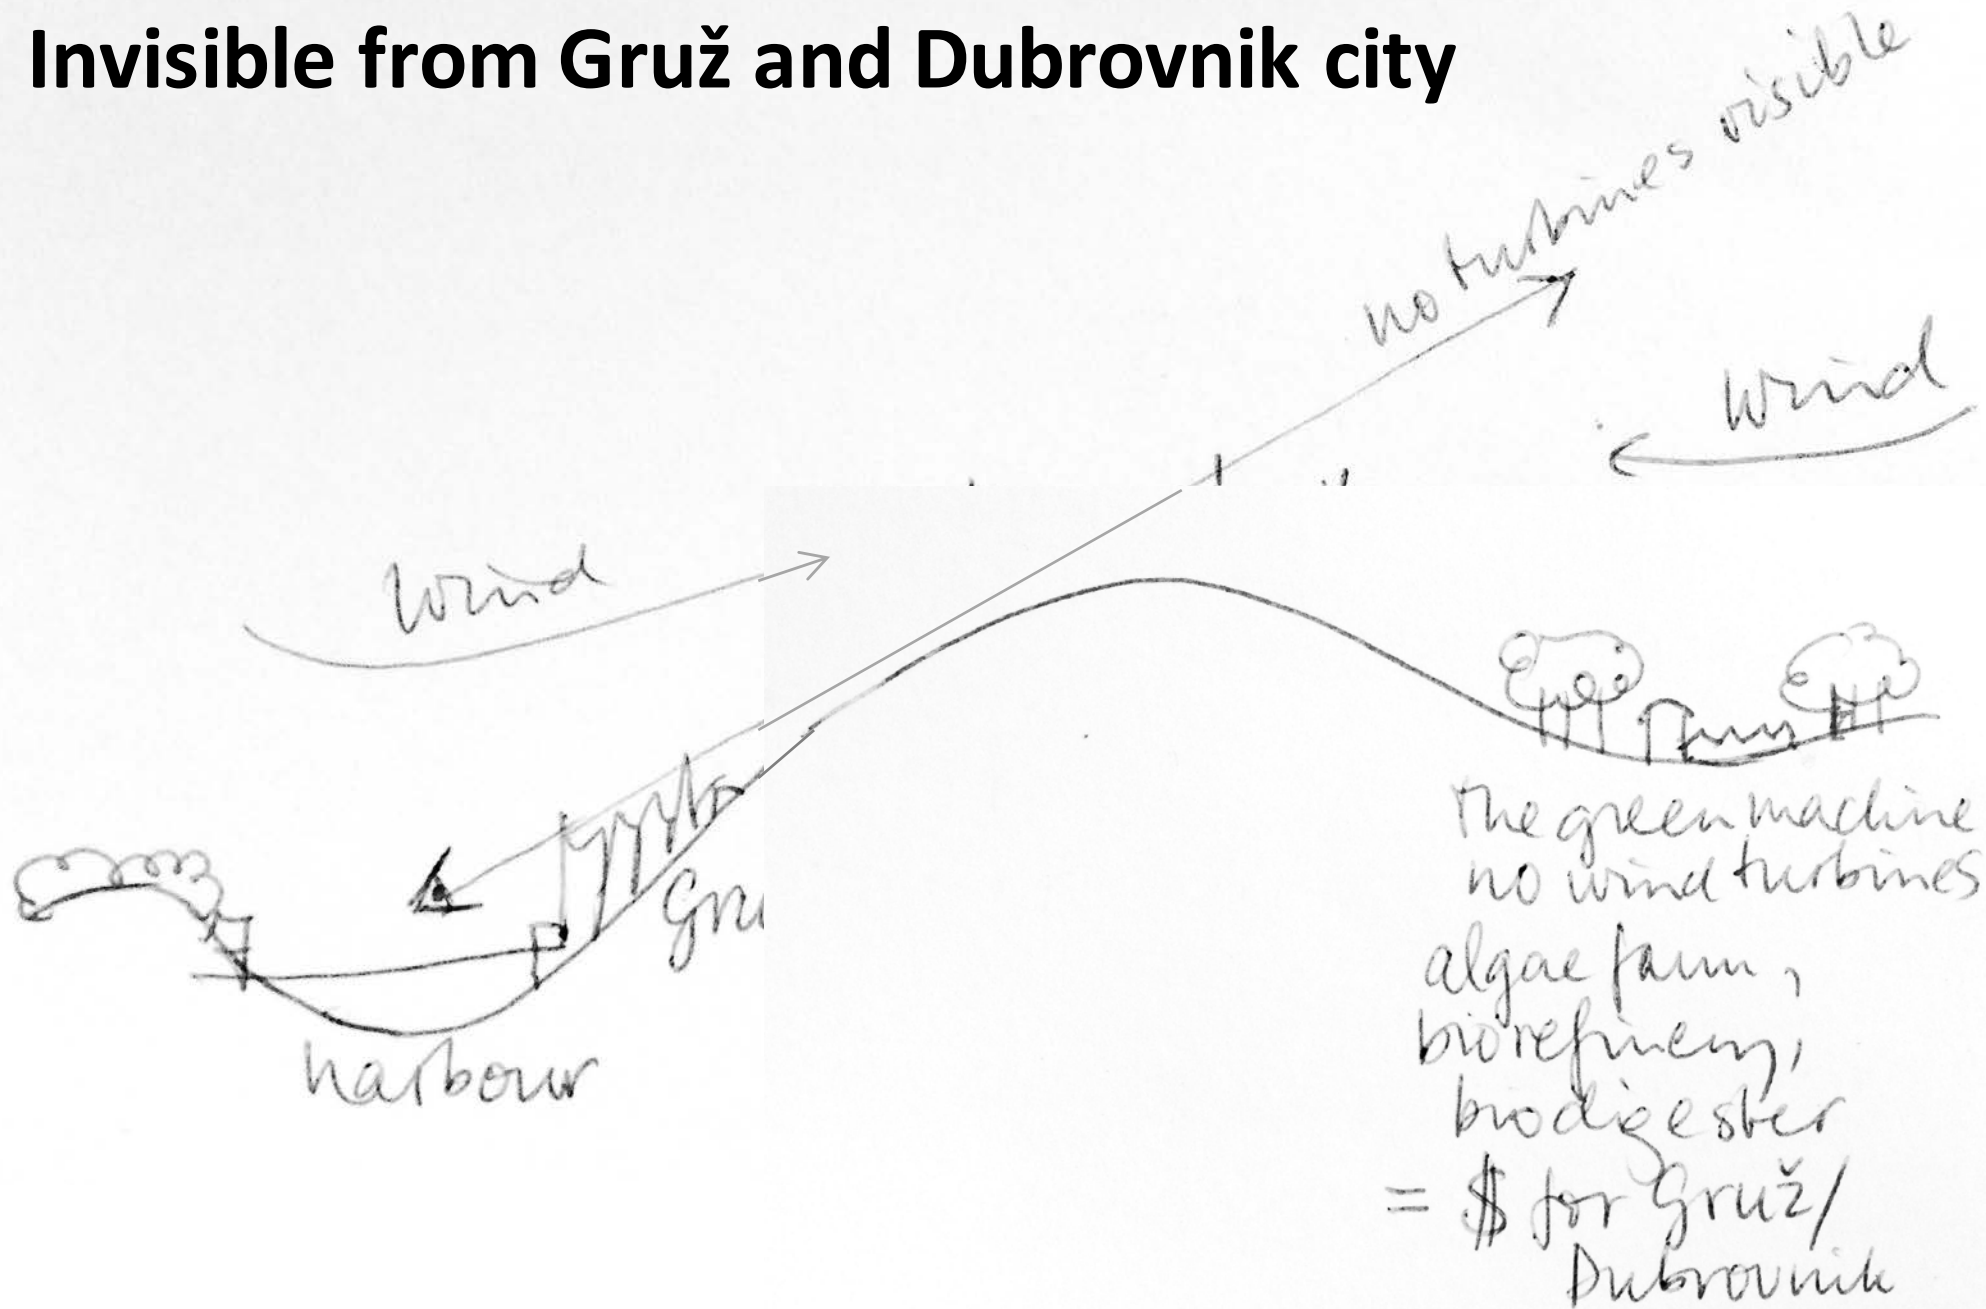 Invisible from Gruž and Dubrovnik city
no turbines visible
wind
wind
Gru
harbour
the green machine
no wind turbines
algae farm,
biorefinery,
biodigester
= $ for Gruž/
Dubrovnik